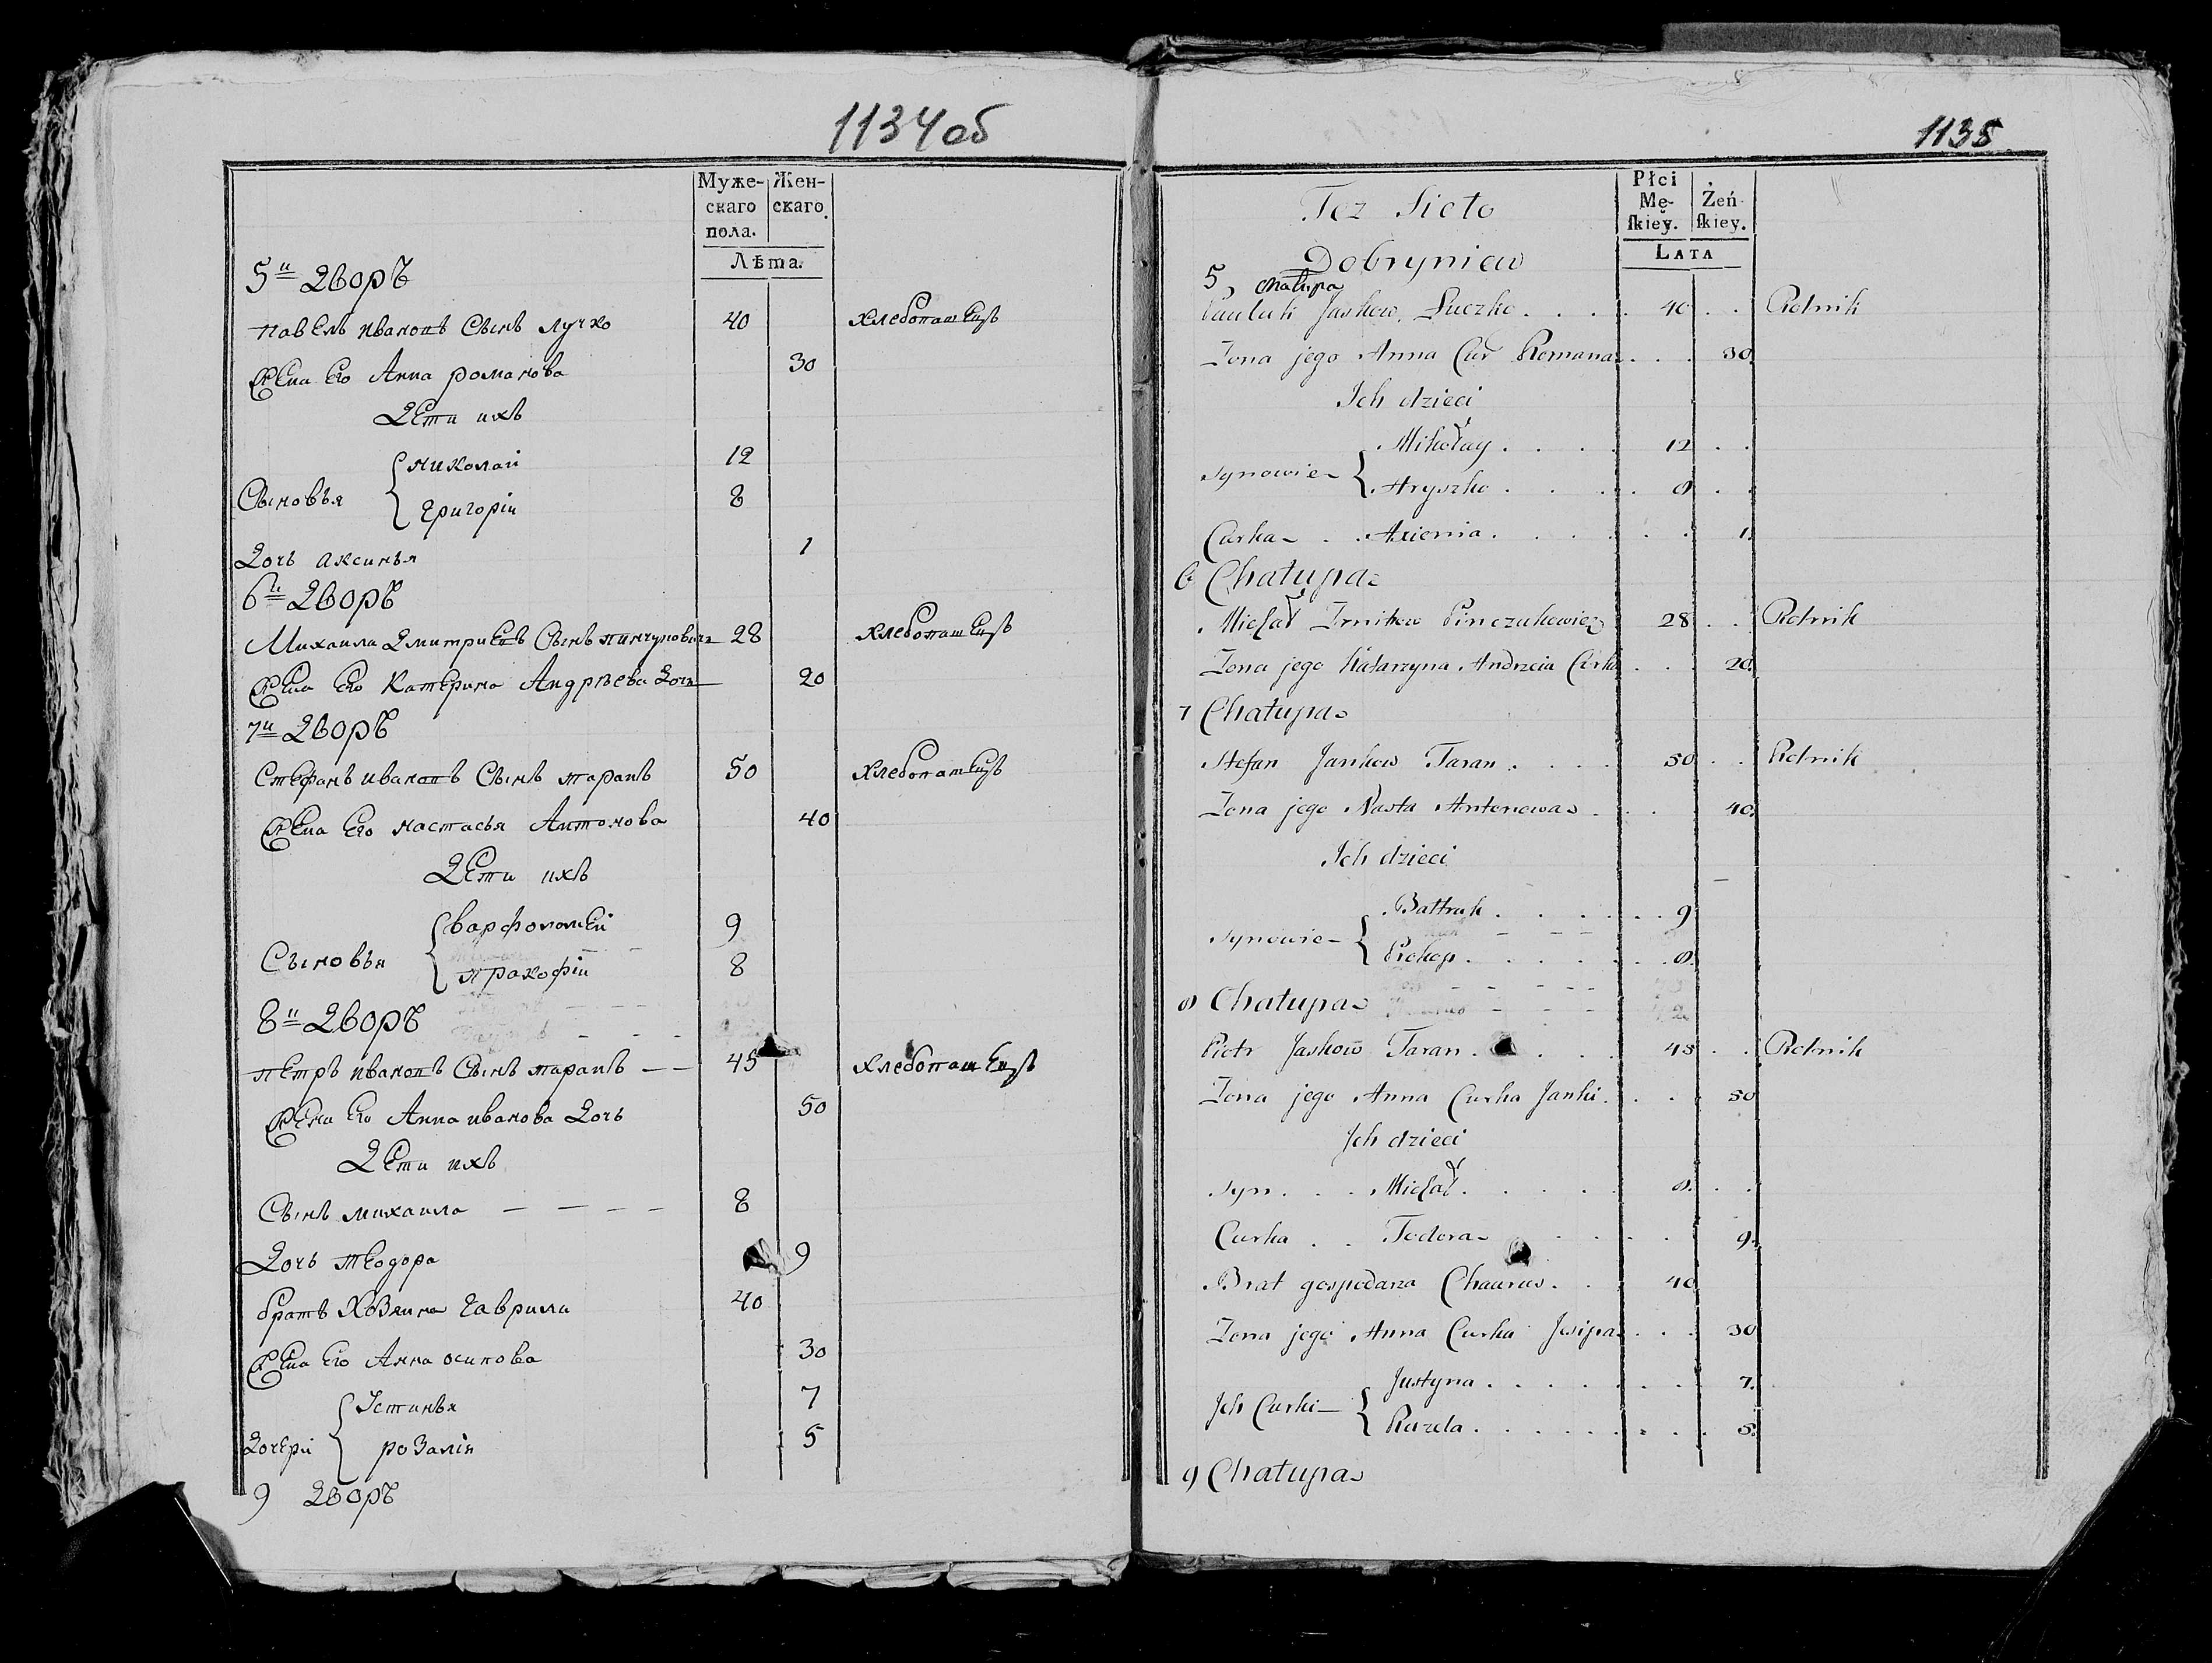 1134об
Муже- Жен-
скаго скаго
пола.
Лѣта.
5й Дворъ
павелъ ивановъ Сынъ лучко 40 хлебопашецъ
жена его Анна романова 30
Дети ихъ
николай 12
Сыновья
григорій 8
Дочь аксинья 1
6й Дворъ
Михаила Дмитриевъ Сынъ пинчуковичъ 28 хлебопашецъ
жена его Катерина Андрѣева Дочь 20
7й Дворъ
Стефанъ ивановъ Сынъ таранъ 50 хлебопашецъ
жена его настасья Антонова 40
Дети ихъ
варфоломей 9
Сыновья
прокофій 8
8й Дворъ
петръ ивановъ Сынъ таранъ 45 хлебопашецъ
жена его Анна иванова Дочь 50
Дети ихъ
Сынъ михаила 8
Дочь теодора 9
братъ хозяина гаврила 40
жена его Анна осипова 30
Устинья 7
Дочери
розалія 5
9 Дворъ
1135
Płci
Mę- Żeń-
skiey. skiey.
LATA
Tez Sioło
Dobryniow
5, Chałupa
Pauluk Jaskow Luczko 40 Rolnik
Zona jego Anna Cur Romana 30
Ich dzieci
Mikołay 12
Synowie
Hryszko 8
Curka Axienia 1
6 Chałupa
Michał Dmitrow Pinczukowicz 28 Rolnik
Zona jego Katarzyna Andrzeia Curka 20
7 Chałupa
Stefan Jankow Taran 50 Rolnik
Zona jego Nasta Antonowa 40
Ich dzieci
Bałtruk 9
Synowie
Prokop 8
8 Chałupa
Piotr Jaskow Taran 45 Rolnik
Zona jego Anna Curka Janki 50
Ich dzieci
Syn Michał 8
Curka Todora 9
Brat gospodarza Chauruś 40
Zona jego Anna Curka Josipa 30
Justyna 7
Ich Curki
Ruzela 5
9 Chałupa